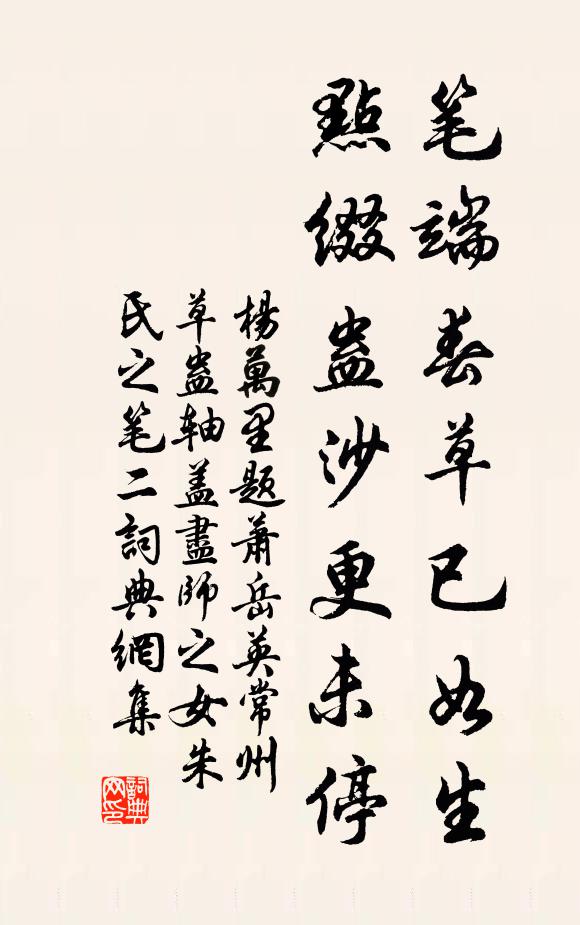 笔端春草已如生
點綴蟲沙更未停
楊萬里題蕭岳英常州
草蟲軸盖畫師之女朱
氏之笔二詞典網集
詞典
网印